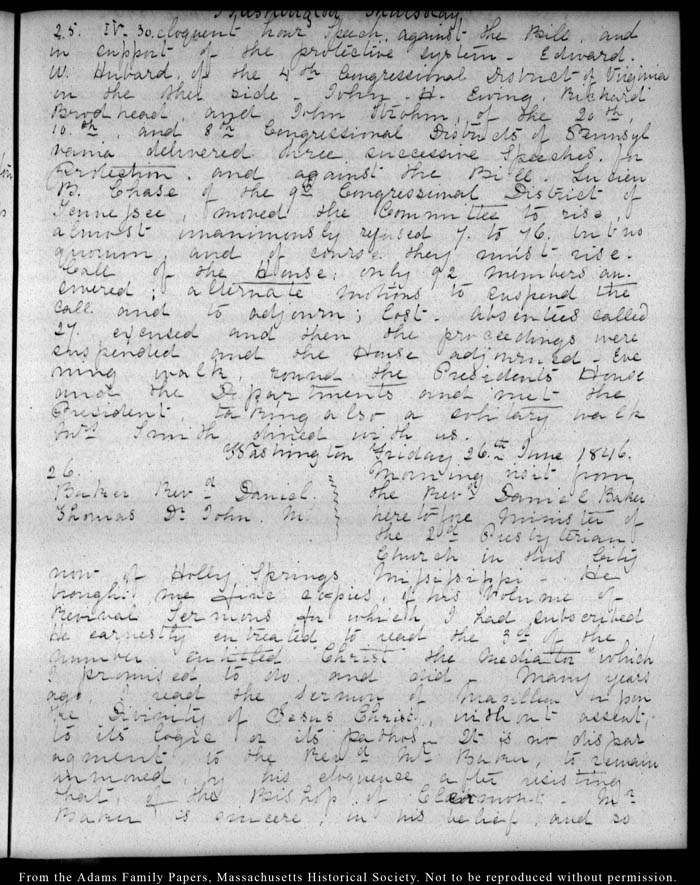 Washington Thursday
25. IV. 30. eloquent hour Speech, against the Bill, and
in support of the protective System - Edward.
W. Hubard, of the 4th Congressional District of Virginia
on the other side - John H. Ewing, Richard
Brodhead, and John Strohm, of the 20th,
10.th, and 8th Congressional Districts of Pennsyl
vania delivered three successive Speeches, for
Protection, and against the Bill. Lucien
B. Chase of the 9th Congressional District of
Tennessee, moved the Committee to rise,
almost unanimously refused 7. to 76. but no
quorum, and of course they must rise.
Call of the House; only 92 members an-
swered; alternate motions to suspend the
call and to adjourn; lost. absentees called
27. excused and then the proceedings were
suspended and the House adjourned - Eve
ning walk, round the Presidents House
and the Departments and met the
President, taking also a solitary walk
Mrs Smith dined with us.
Washington Friday 26.th June 1846.
26. Morning visit from
Baker Revd Daniel. the Revd Daniel Baker
Thomas Dr John. M. heretofore Minister of
the 2d Presbyterian
Church in this City
now of Holly Springs Mississippi - He
brought me five copies, of his Volume of
Revival Sermons for which I had subscribed
He earnestly entreated to read the 3d of the
number entitled Christ the Mediator" which
I promised to do. and did - Many years
ago, I read the Sermon of Masillon upon
the Divinity of Jesus Christ, without assent,
to its logic or its pathos - It is no dispar
agment, to the Revd Mr Baker, to remain
unmoved, by his eloquence after resisting
that, of the Bishop of Clermont - Mr
Baker is sincere, in his belief, and so
From the Adams Family Papers, Massachusetts Historical Society. Not to be reproduced without permission.